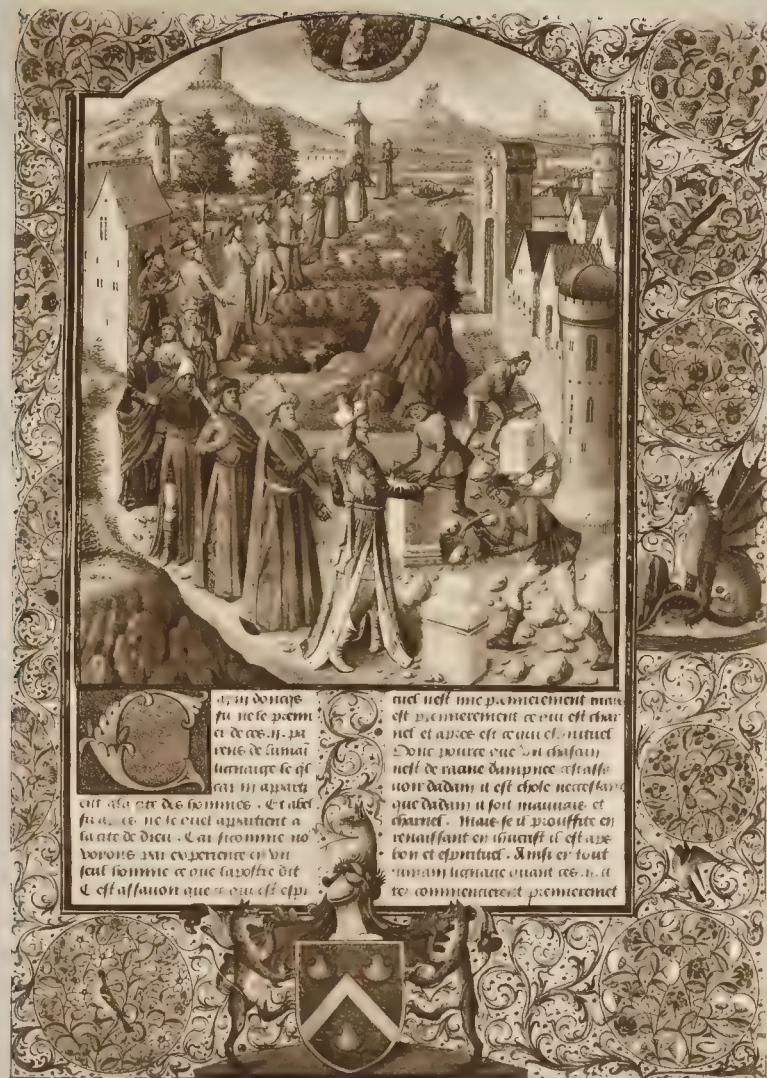 ayn doncqs
fu ne le premi
er de ces .ij. pa
rens de lumai
lignaige le ql
cayn apparti
ent ala cite des hommes . Et abel
fu apres ne le quel appartient a
la cite de dieu . Car sicomme no
voyons par experience en vn
seul homme ce que lapostre dit
Cest assauoir que ce qui est espi
rituel nest mie premierement mais
est premierement ce qui est char
nel et apres est ce qui est
Donc pource que vn chascun
nest de racine dampnee
uoir dadam il est chose necessaire
que dadam il soit mauuais et
charnel . Mais se il prouffite en
renaissant en ihucrist il est apres
bon et espirituel . Ainsi en tout
humain lignage quant ces .ij. ci
tez commencierent premieremet